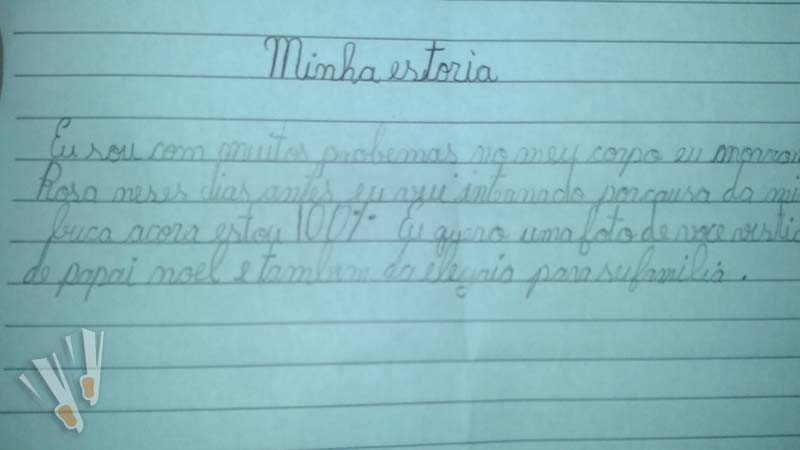 Minha estoria
Eu sou com muitos probemas no mey corpo eu
Rosa meses dias antes eu internado porcausa da
acora estou 100% Eu quero uma foto de voce
de papai noel e tambem da para su familia.